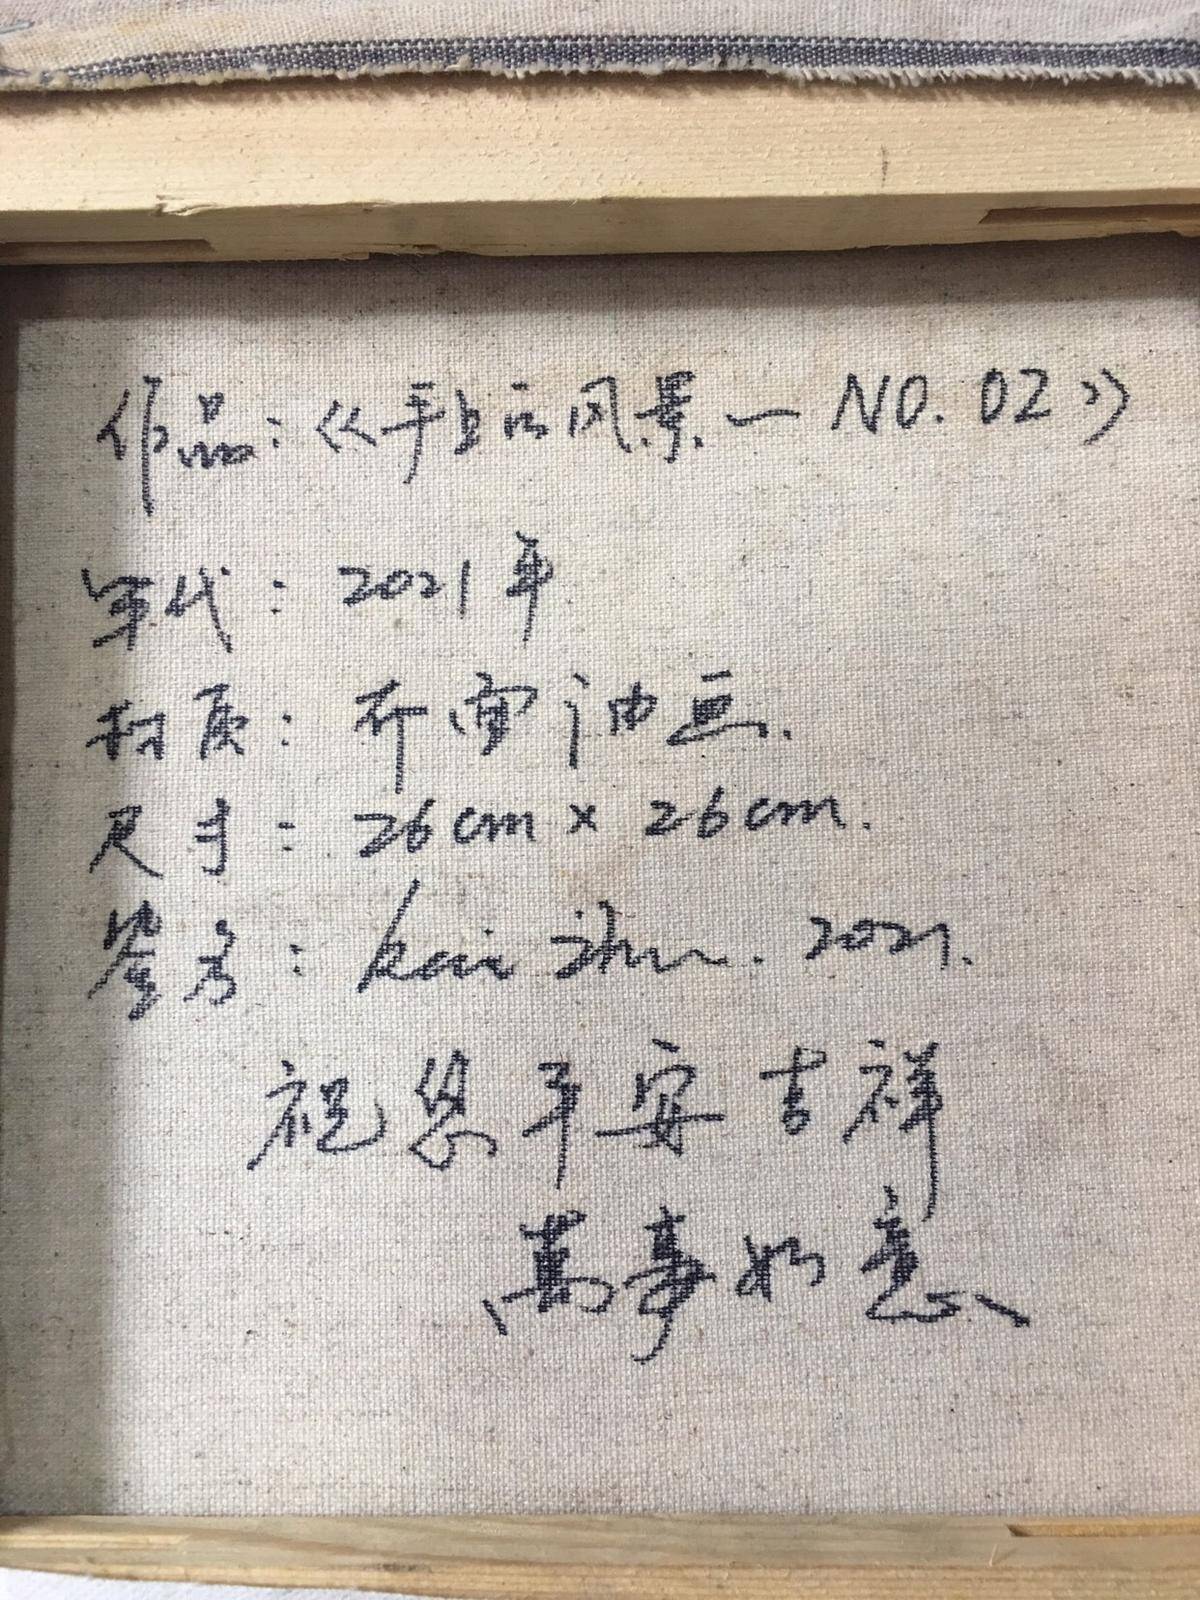 作品：《手上的风景一 NO.02》
年代：2021年
材质：布面油画.
尺寸：26cm × 26cm.
签名：kai zhu. 2021.
祝您平安吉祥
萬事如意、